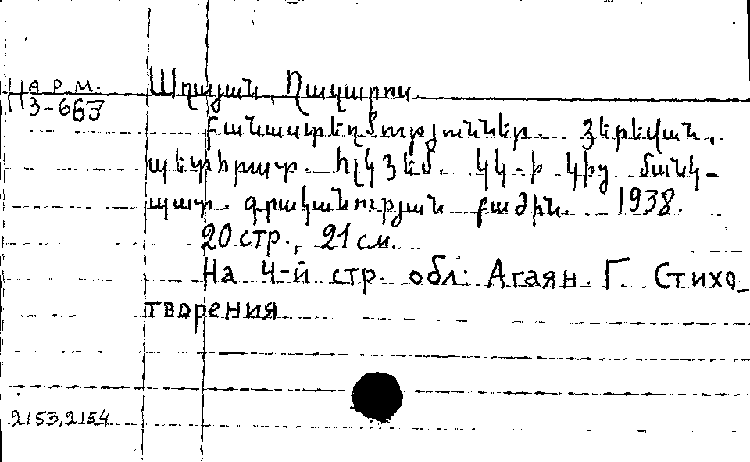 АРМ. Աղայան, Ղազարոս
3-663
Բանաստեղծություններ. Յերեվան,
պետհրատ. ՀԼԿՅԵՄ. ԿԿ-ի կից մանկ-
պատ. գրականության բաժին. 1938.
20 стр., 21 см.
На 4-й стр. обл: Агаян Г. Стихо-
творения
2153,2154